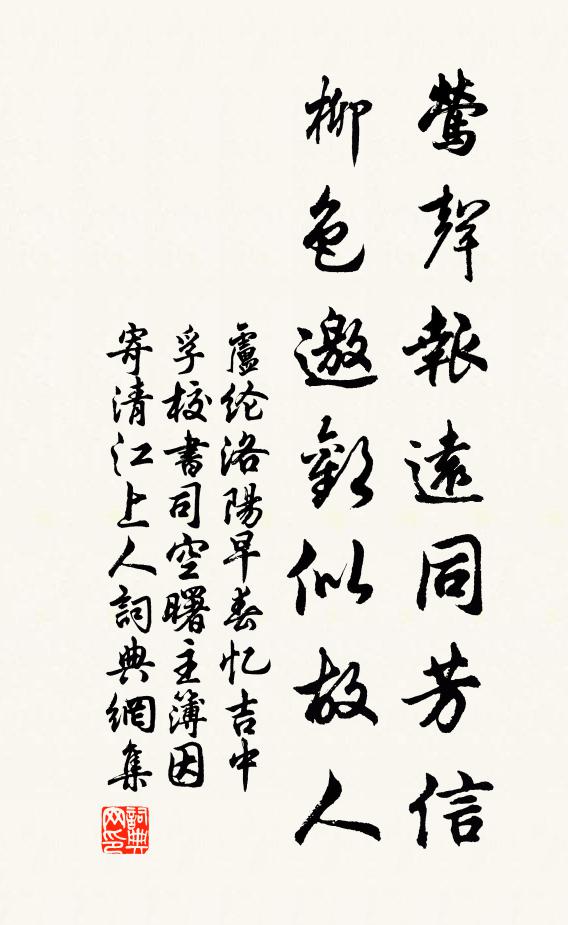 鶯聲報遠同芳信
柳色邀歡似故人
盧纶洛陽早春忆吉中
孚校書司空曙主簿因
寄清江上人詞典網集
詞典
网印